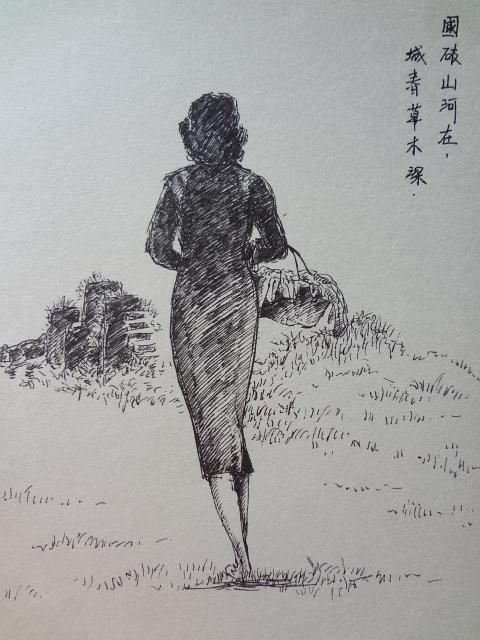 國破山河在，
城春草木深.